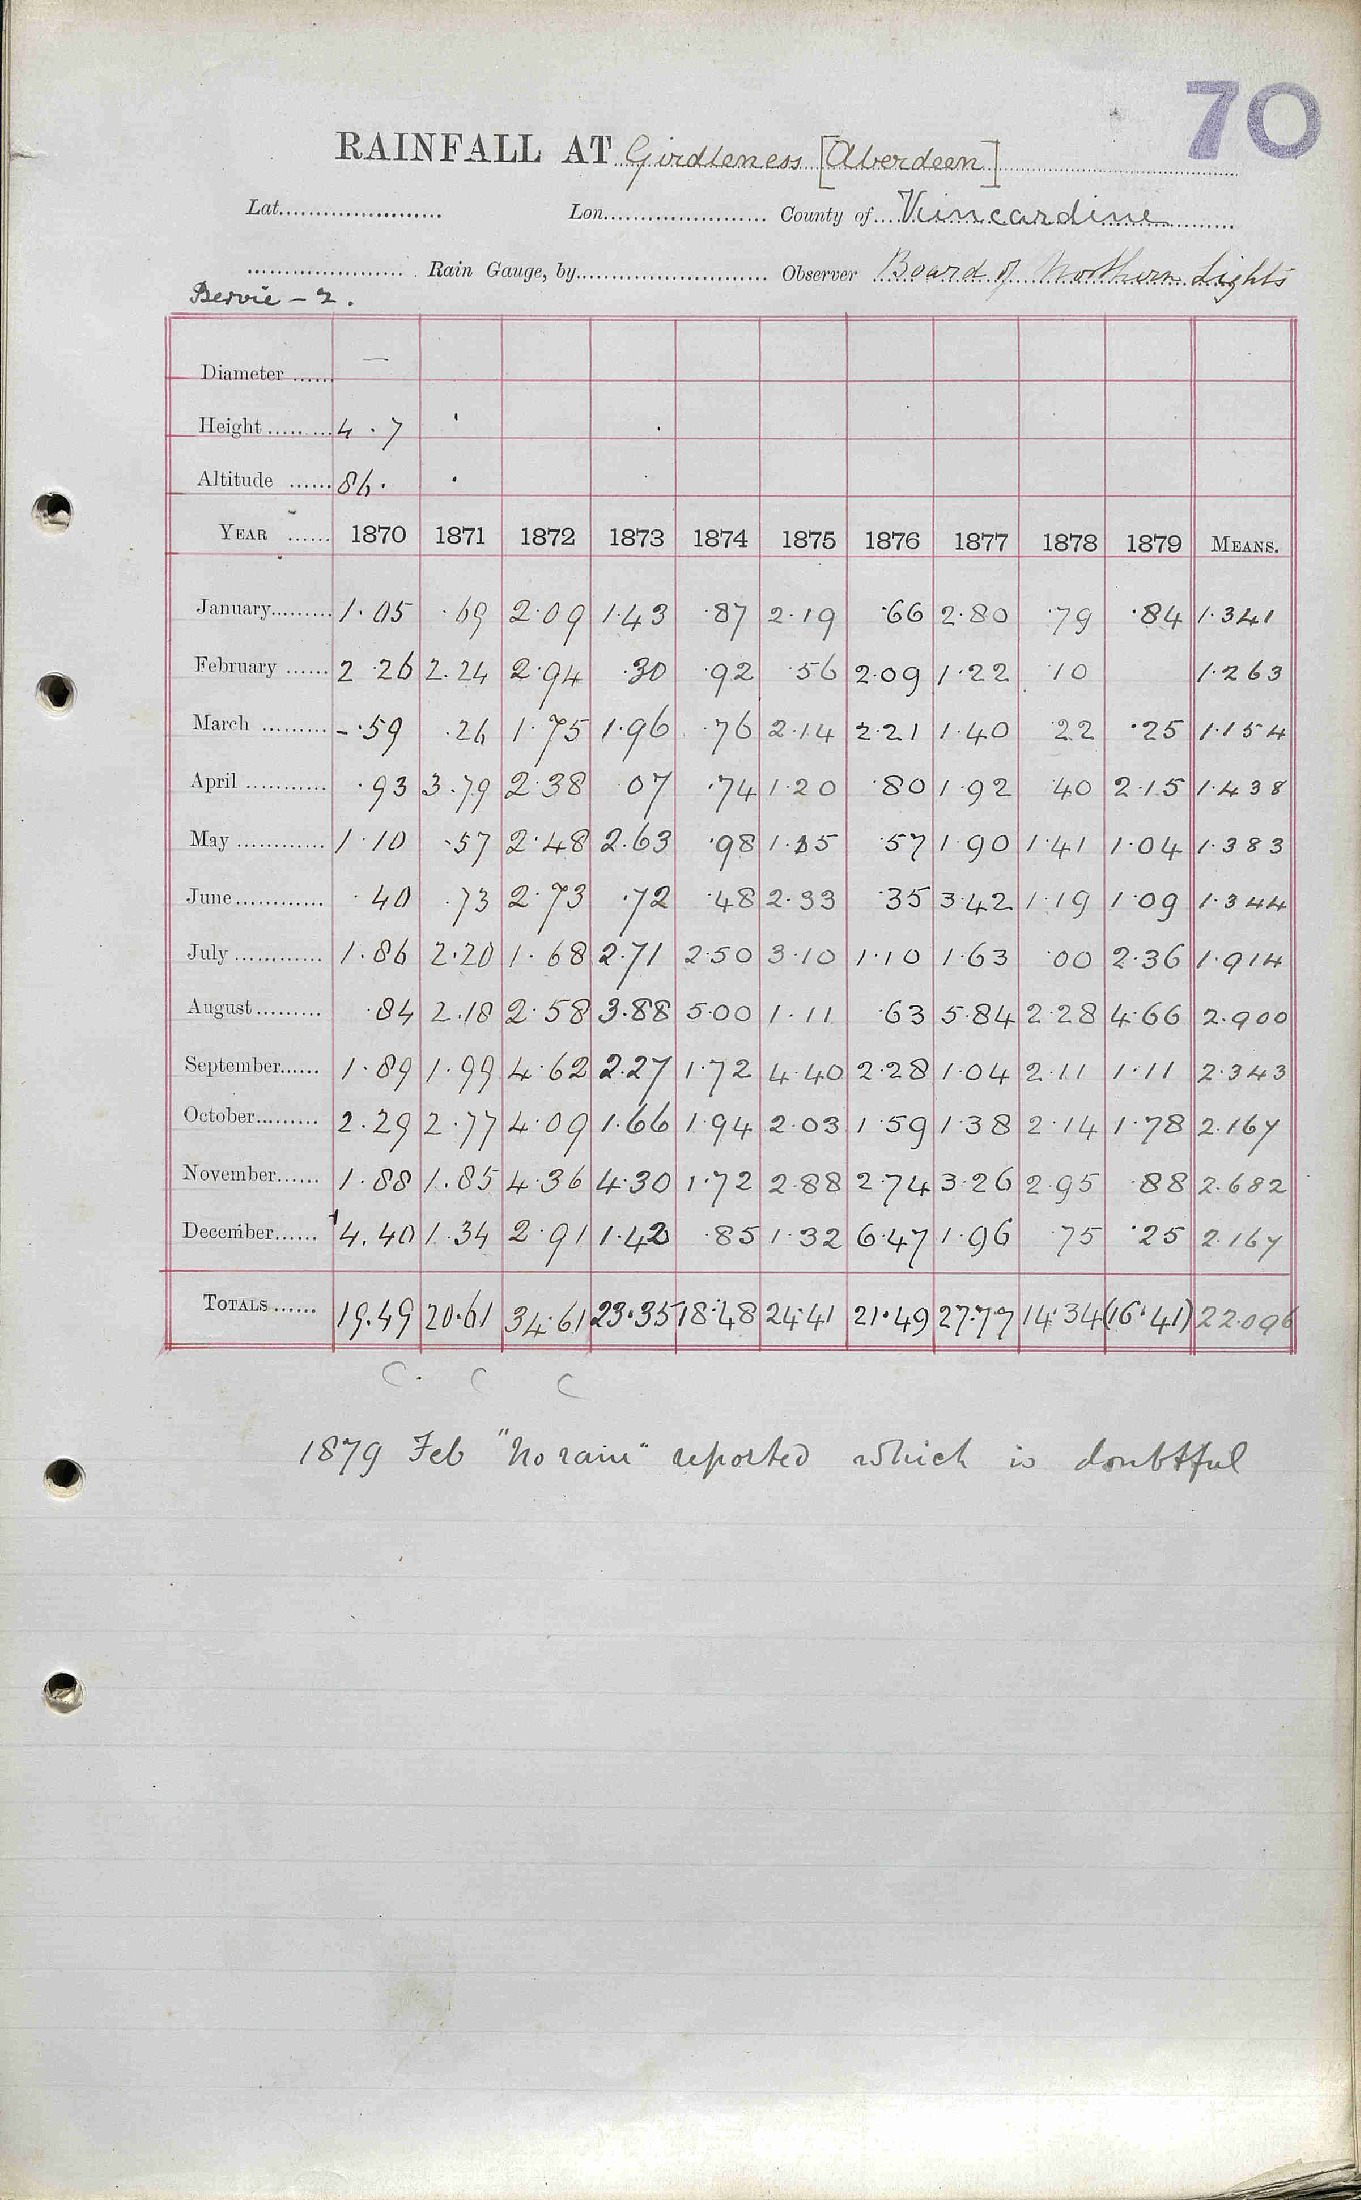 70
RAINFALL AT Girdleness [Aberdeen]
Lat. Lon. County of Kincardine
Rain Gauge, by Observer Board of Northern Lights
Bervie - 2.
Diameter —
Height 4 . 7
Altitude 86.
YEAR 1870 1871 1872 1873 1874 1875 1876 1877 1878 1879 MEANS.
January 1.05 .69 2.09 1.43 .87 2.19 .66 2.80 .79 .84 1.341
February 2.26 2.24 2.94 .30 .92 .56 2.09 1.22 .10 1.263
March -.59 .26 1.75 1.96 .76 2.14 2.21 1.40 .22 .25 1.154
April .93 3.79 2.38 .07 .74 1.20 .80 1.92 .40 2.15 1.438
May 1.10 .57 2.48 2.63 .98 1.15 .57 1.90 1.41 1.04 1.383
June .40 .73 2.73 .72 .48 2.33 .35 3.42 1.19 1.09 1.344
July 1.86 2.20 1.68 2.71 2.50 3.10 1.10 1.63 .00 2.36 1.914
August .84 2.18 2.58 3.88 5.00 1.11 .63 5.84 2.28 4.66 2.900
September 1.89 1.99 4.62 2.27 1.72 4.40 2.28 1.04 2.11 1.11 2.343
October 2.29 2.77 4.09 1.66 1.94 2.03 1.59 1.38 2.14 1.78 2.167
November 1.88 1.85 4.36 4.30 1.72 2.88 2.74 3.26 2.95 .88 2.682
December 4.40 1.34 2.91 1.42 .85 1.32 6.47 1.96 .75 .25 2.167
TOTALS 19.49 20.61 34.61 23.35 18.48 24.41 21.49 27.77 14.34 (16.41) 22.096
C. C C
1879 Feb "No rain" reported which is doubtful